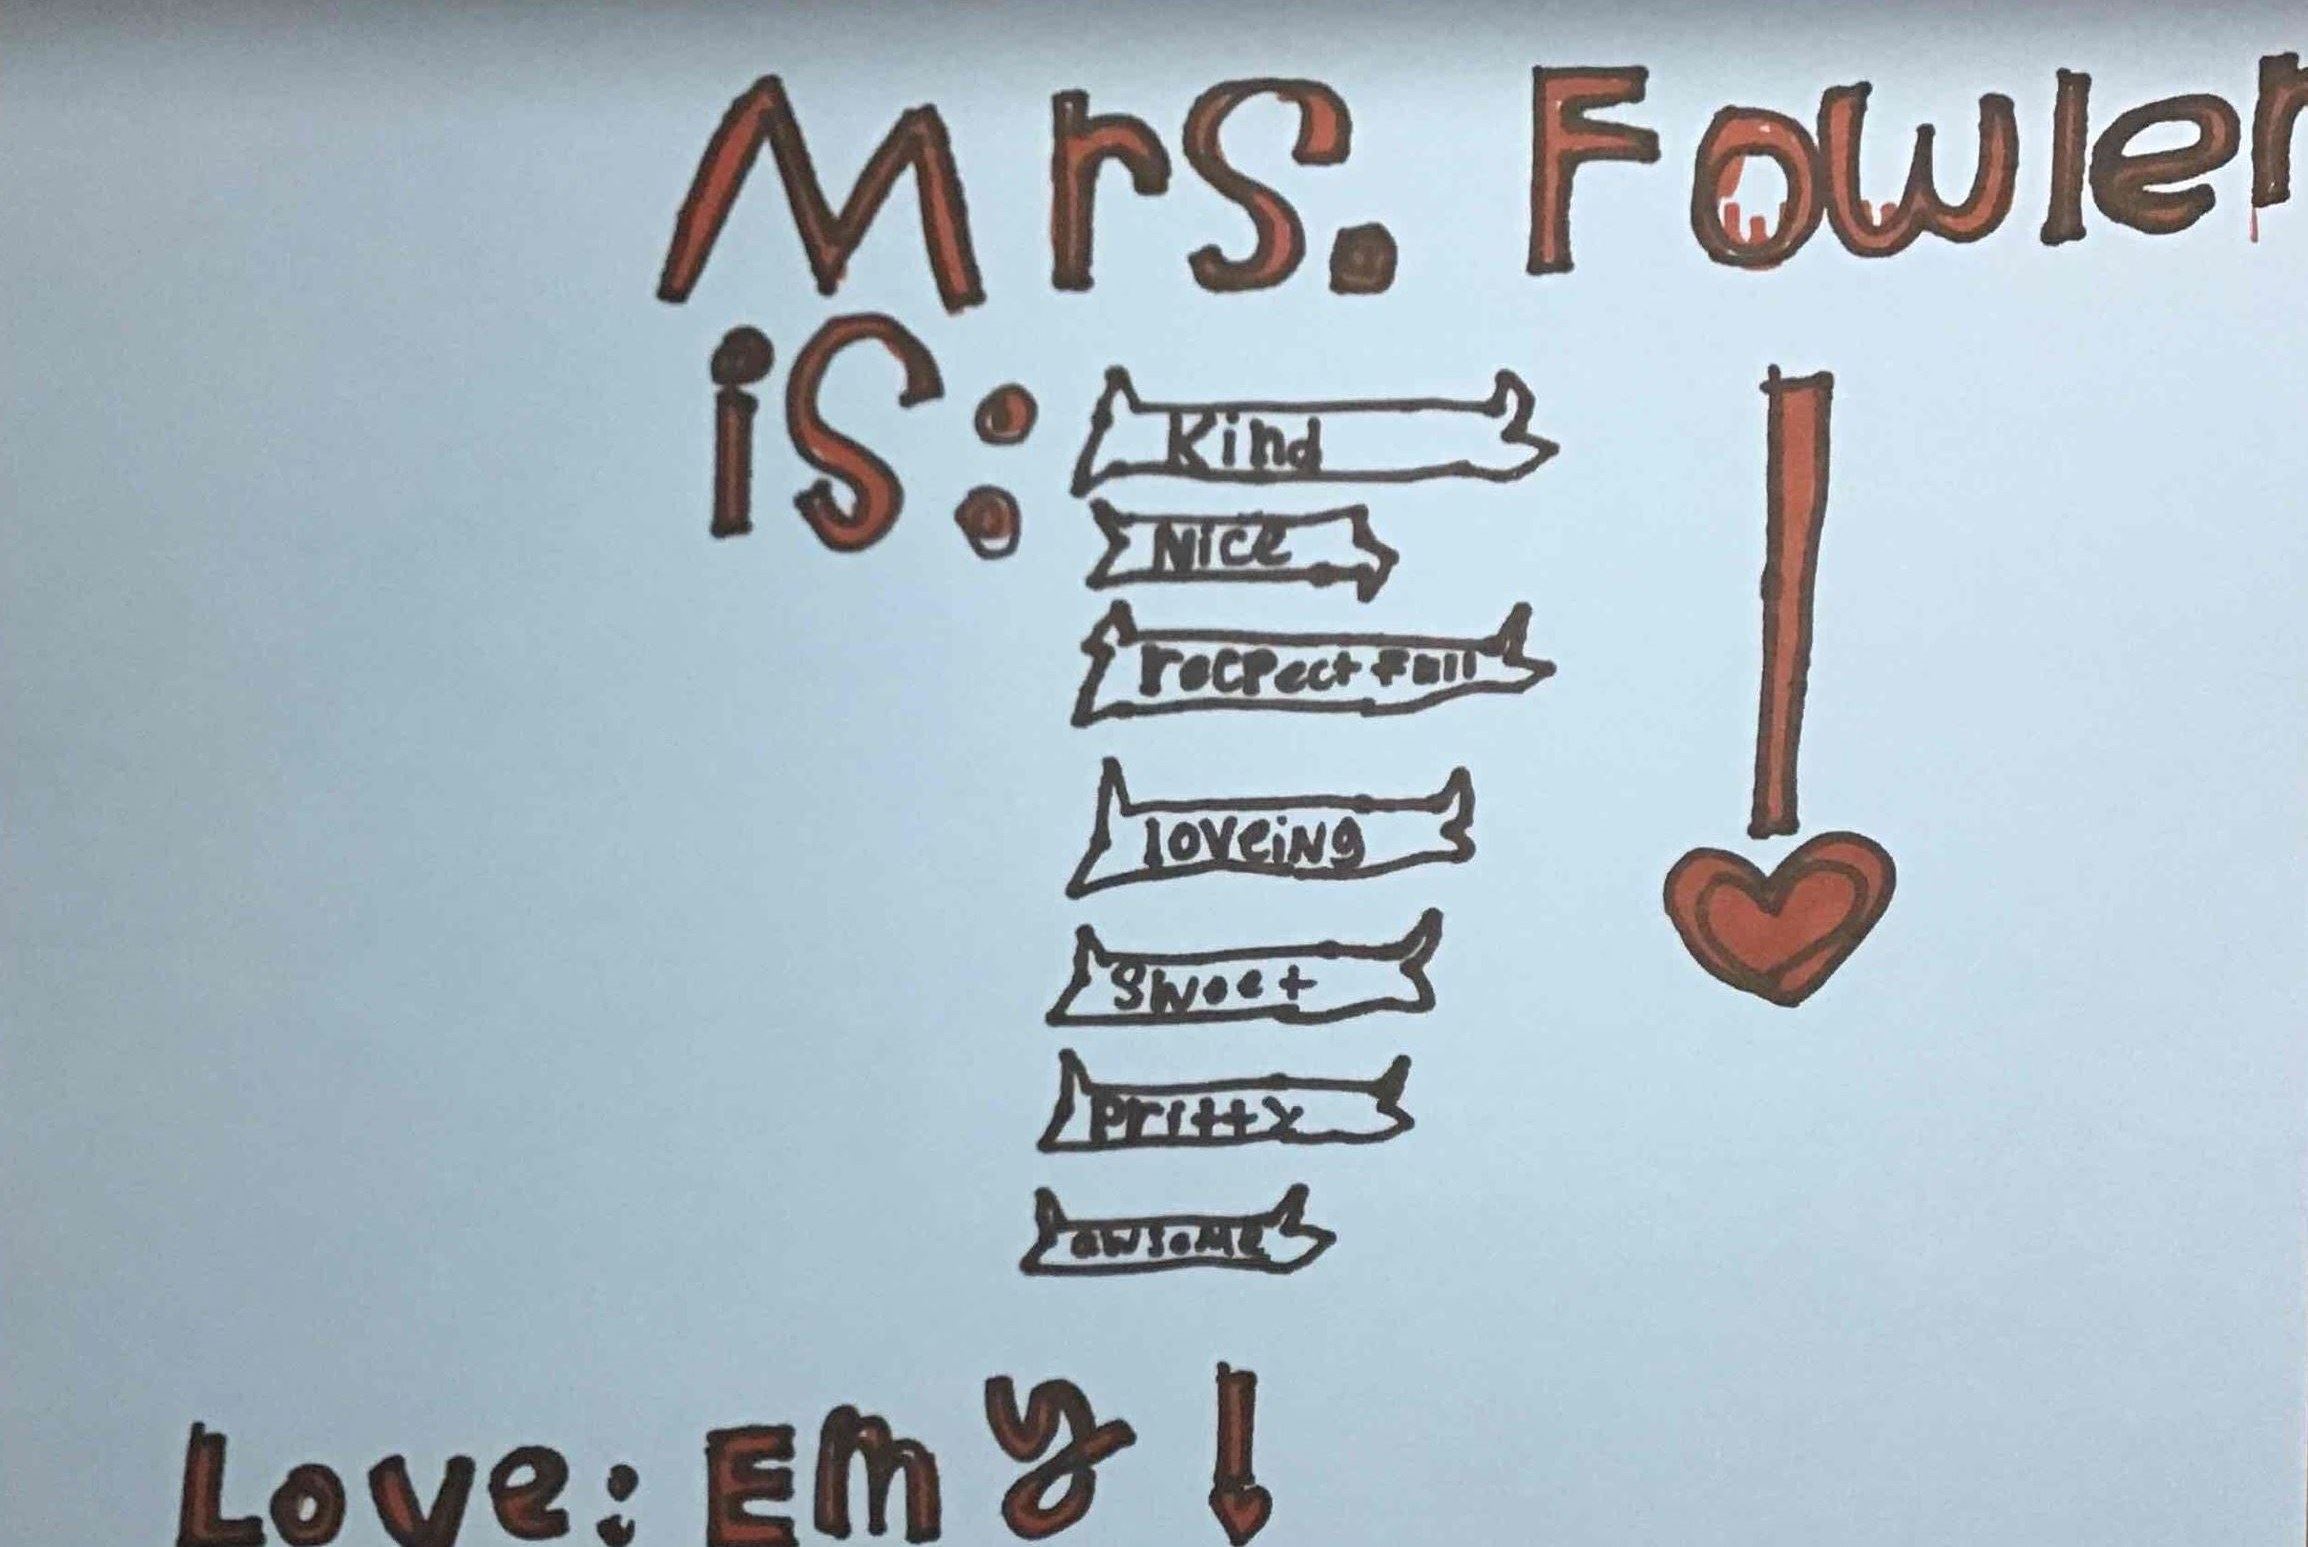 Mrs. Fowler
is:
Kind
Nice
recpectfull
loveing
Sweet
Pritty
awsome
Love: Emy!